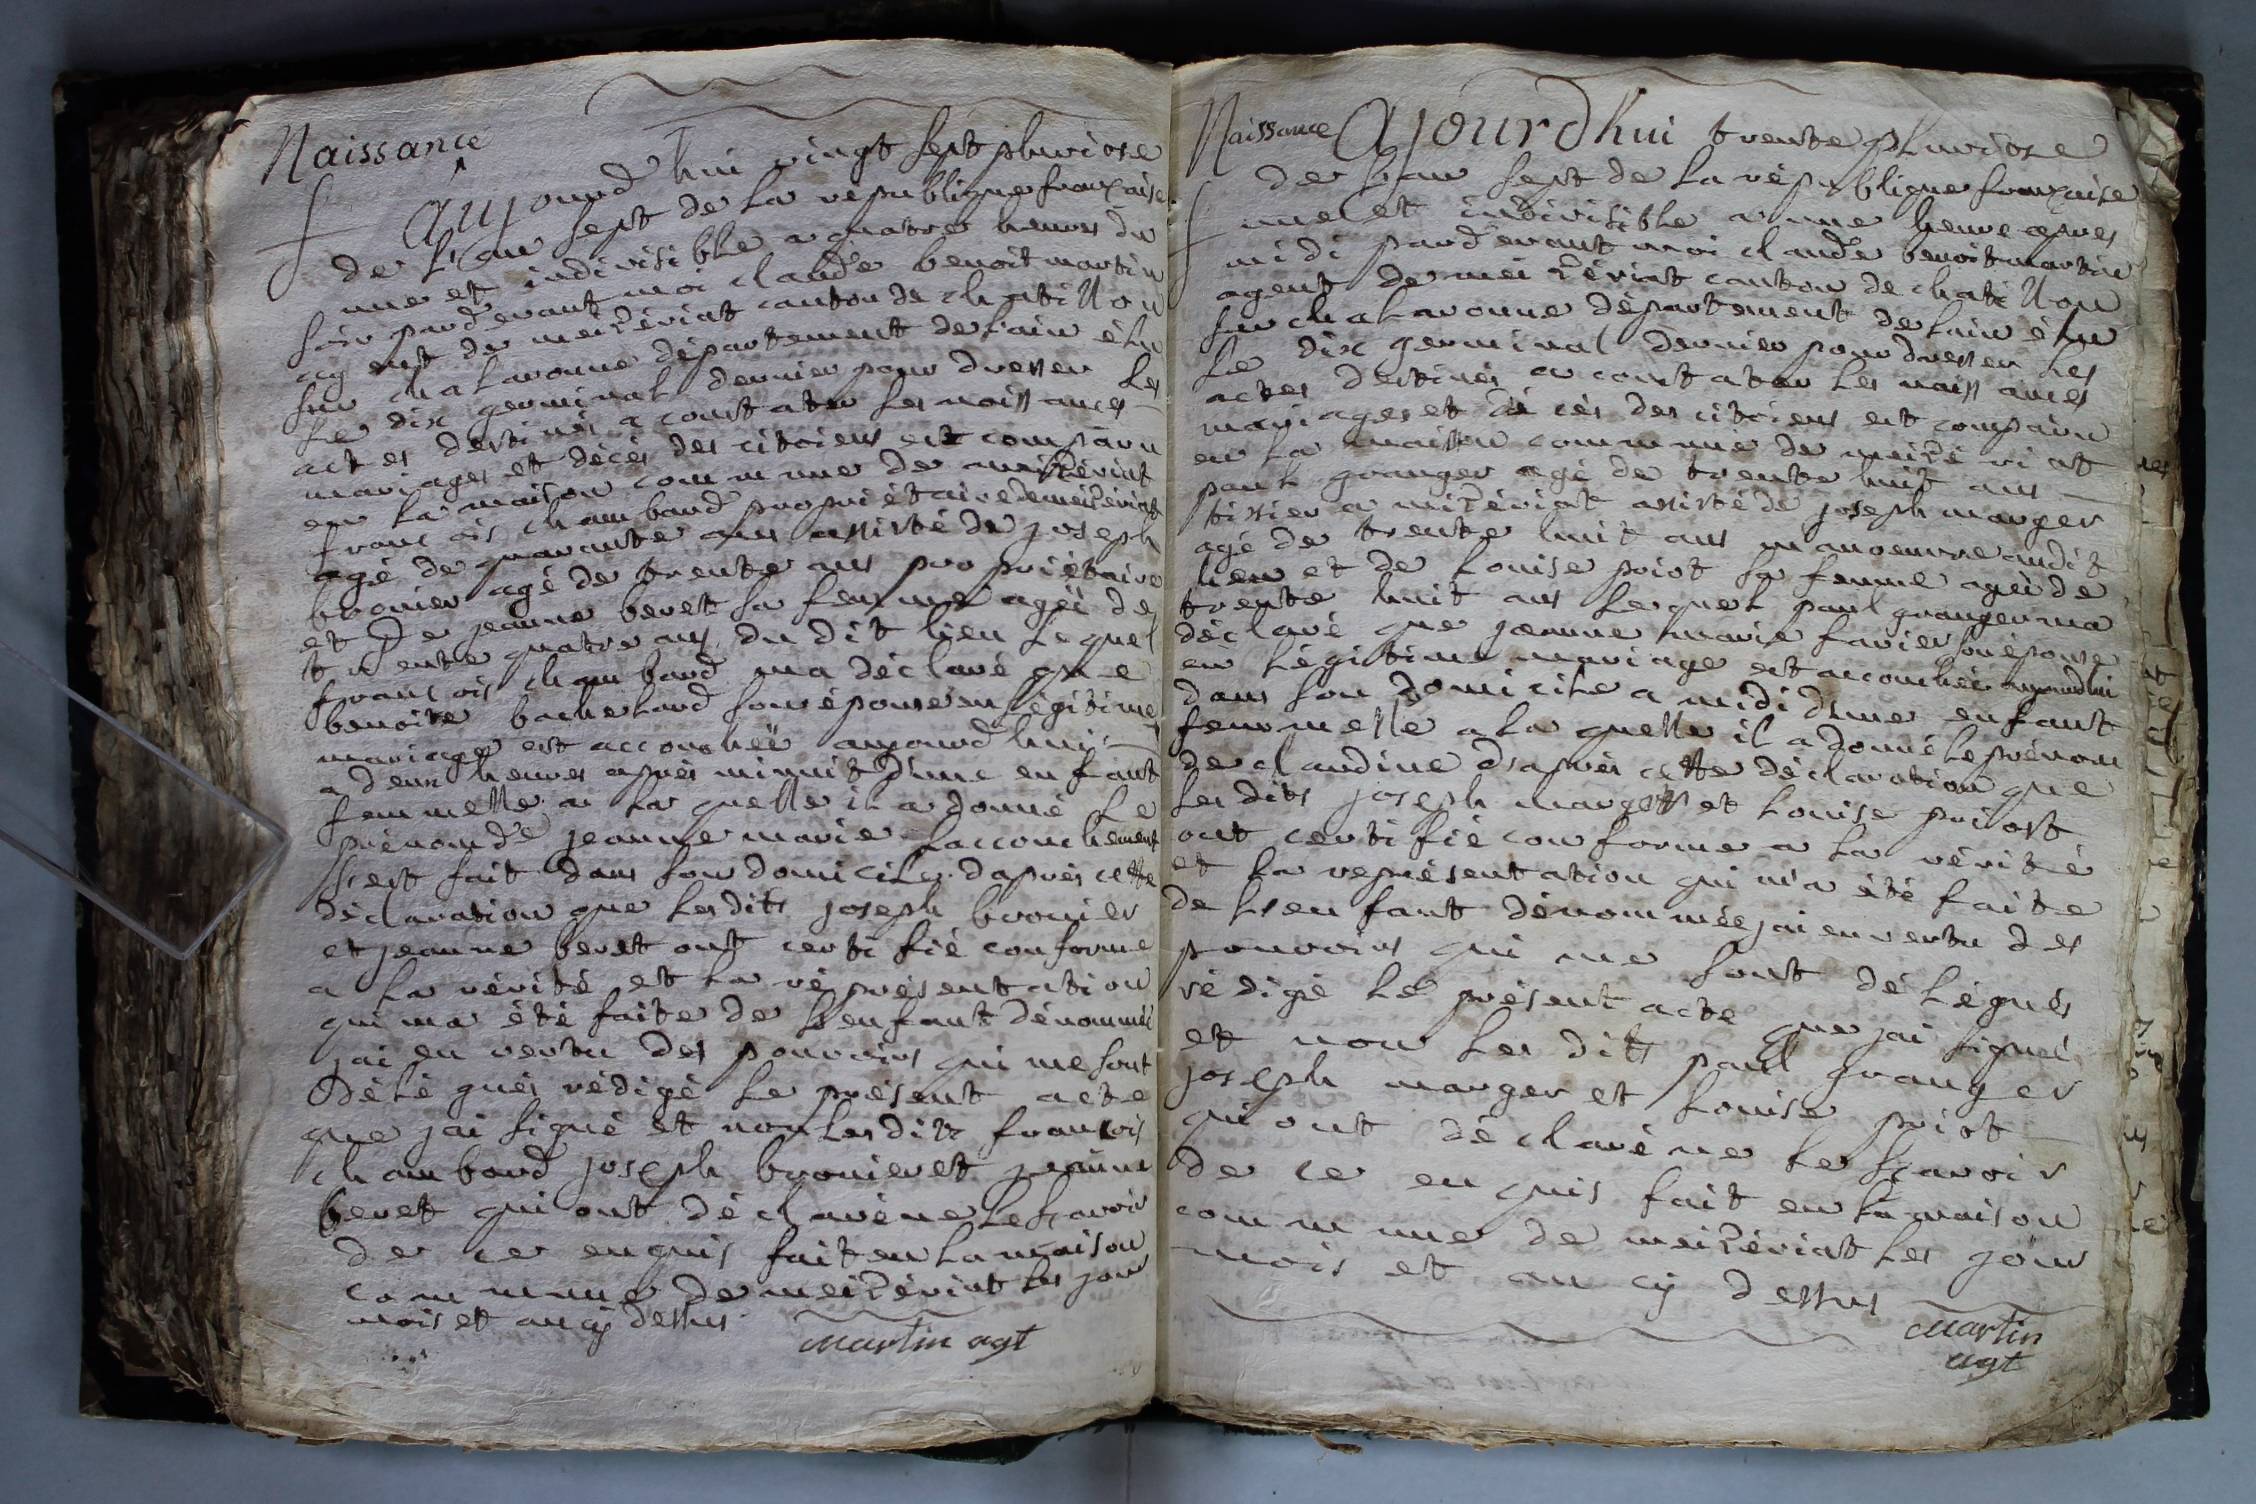 Naissance
aujourd'hui vingt sept pluviose
de l'an sept de la republique française
une et indivisible a quatre heures du
soir pard'evant moi claude benoit martin
agent de meizériat canton de chatillon
sur chalaronne département de l'ain élu
le dix germinal dernier pour dresser les
actes destinés a constater les naissances
mariages et décès des citoiens est comparu
en la maison commune de meizériat
francois chambard propriétaire demeizériat
agé de quarante ans assisté de joseph
bronier agé de trente ans propriétaire
et de jeanne beret sa femme agéé de
trente quatre ans du dit lieu lequel
francois chambard ma déclaré que
benoite bachelard son épouse en légitime
mariage est accouchéé aujourd'hui
a deux heures après minuit d'une enfant
femmelle a la quelle il a donné le
prénom de jeanne marie laccouchement
s'est fait dans son domicile d'après cette
déclaration que lesdits joseph bronier
et jeanne beret ont certifié conforme
a la vérité et la représentation
qui ma été faite de l'enfant dénommé
jai en vertu des pouvoirs qui me sont
délégués rédigé le présent acte
que jai signé et non lesdits francois
chambard joseph bronier et jeanne
beret qui ont déclaré ne le scavoir
de ce enquis fait en la maison
commune de meizériat les jour
mois et an cy dessus
martin agt
Naissance Ajourdhui trente pluviose
de l'an sept de la république française
une et indivisible a une heure apres
midi pard'evant moi claude benoit martin
agent de meizériat canton de chatillon
sur chalaronne département de lain élu
le dix germinal dernier pour dresser les
actes destinés a constater les naissances
mariages et décès des citoiens est comparu
en la maison commune de meizériat
paul granger agé de trente huit ans
tissier a meizériat assisté de joseph marger
agé de trente huit ans manoeuvre audit
lieu et de louise priot sa femme agéé de
trente huit ans lequel paul granger ma
déclaré que jeanne marie favier son épouse
en légitime mariage est accouchéé aujourdhui
dans son domicile a midi d'une enfant
femmelle a la quelle il a donné le prénom
de claudine d'après cette déclaration que
lesdits joseph marger et louise priost
ont certifié conforme a la vérité
et la représentation qui m'a été faite
de l'enfant dénommée jai en vertu des
pouvoirs qui me sont délégués
rédigé le présent acte que jai signé
et non les dits paul granger
joseph marger et louise priot
qui ont déclaré ne le scavoir
de ce enquis fait en la maison
commune de meizériat les jour
mois et an cy dessus
martin
agt